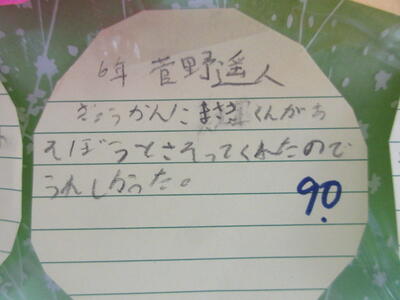 6年 菅野遥人
ぎょうかんにまさきくんがあ
そぼうとさそってくれたので
うれしかった。
90.